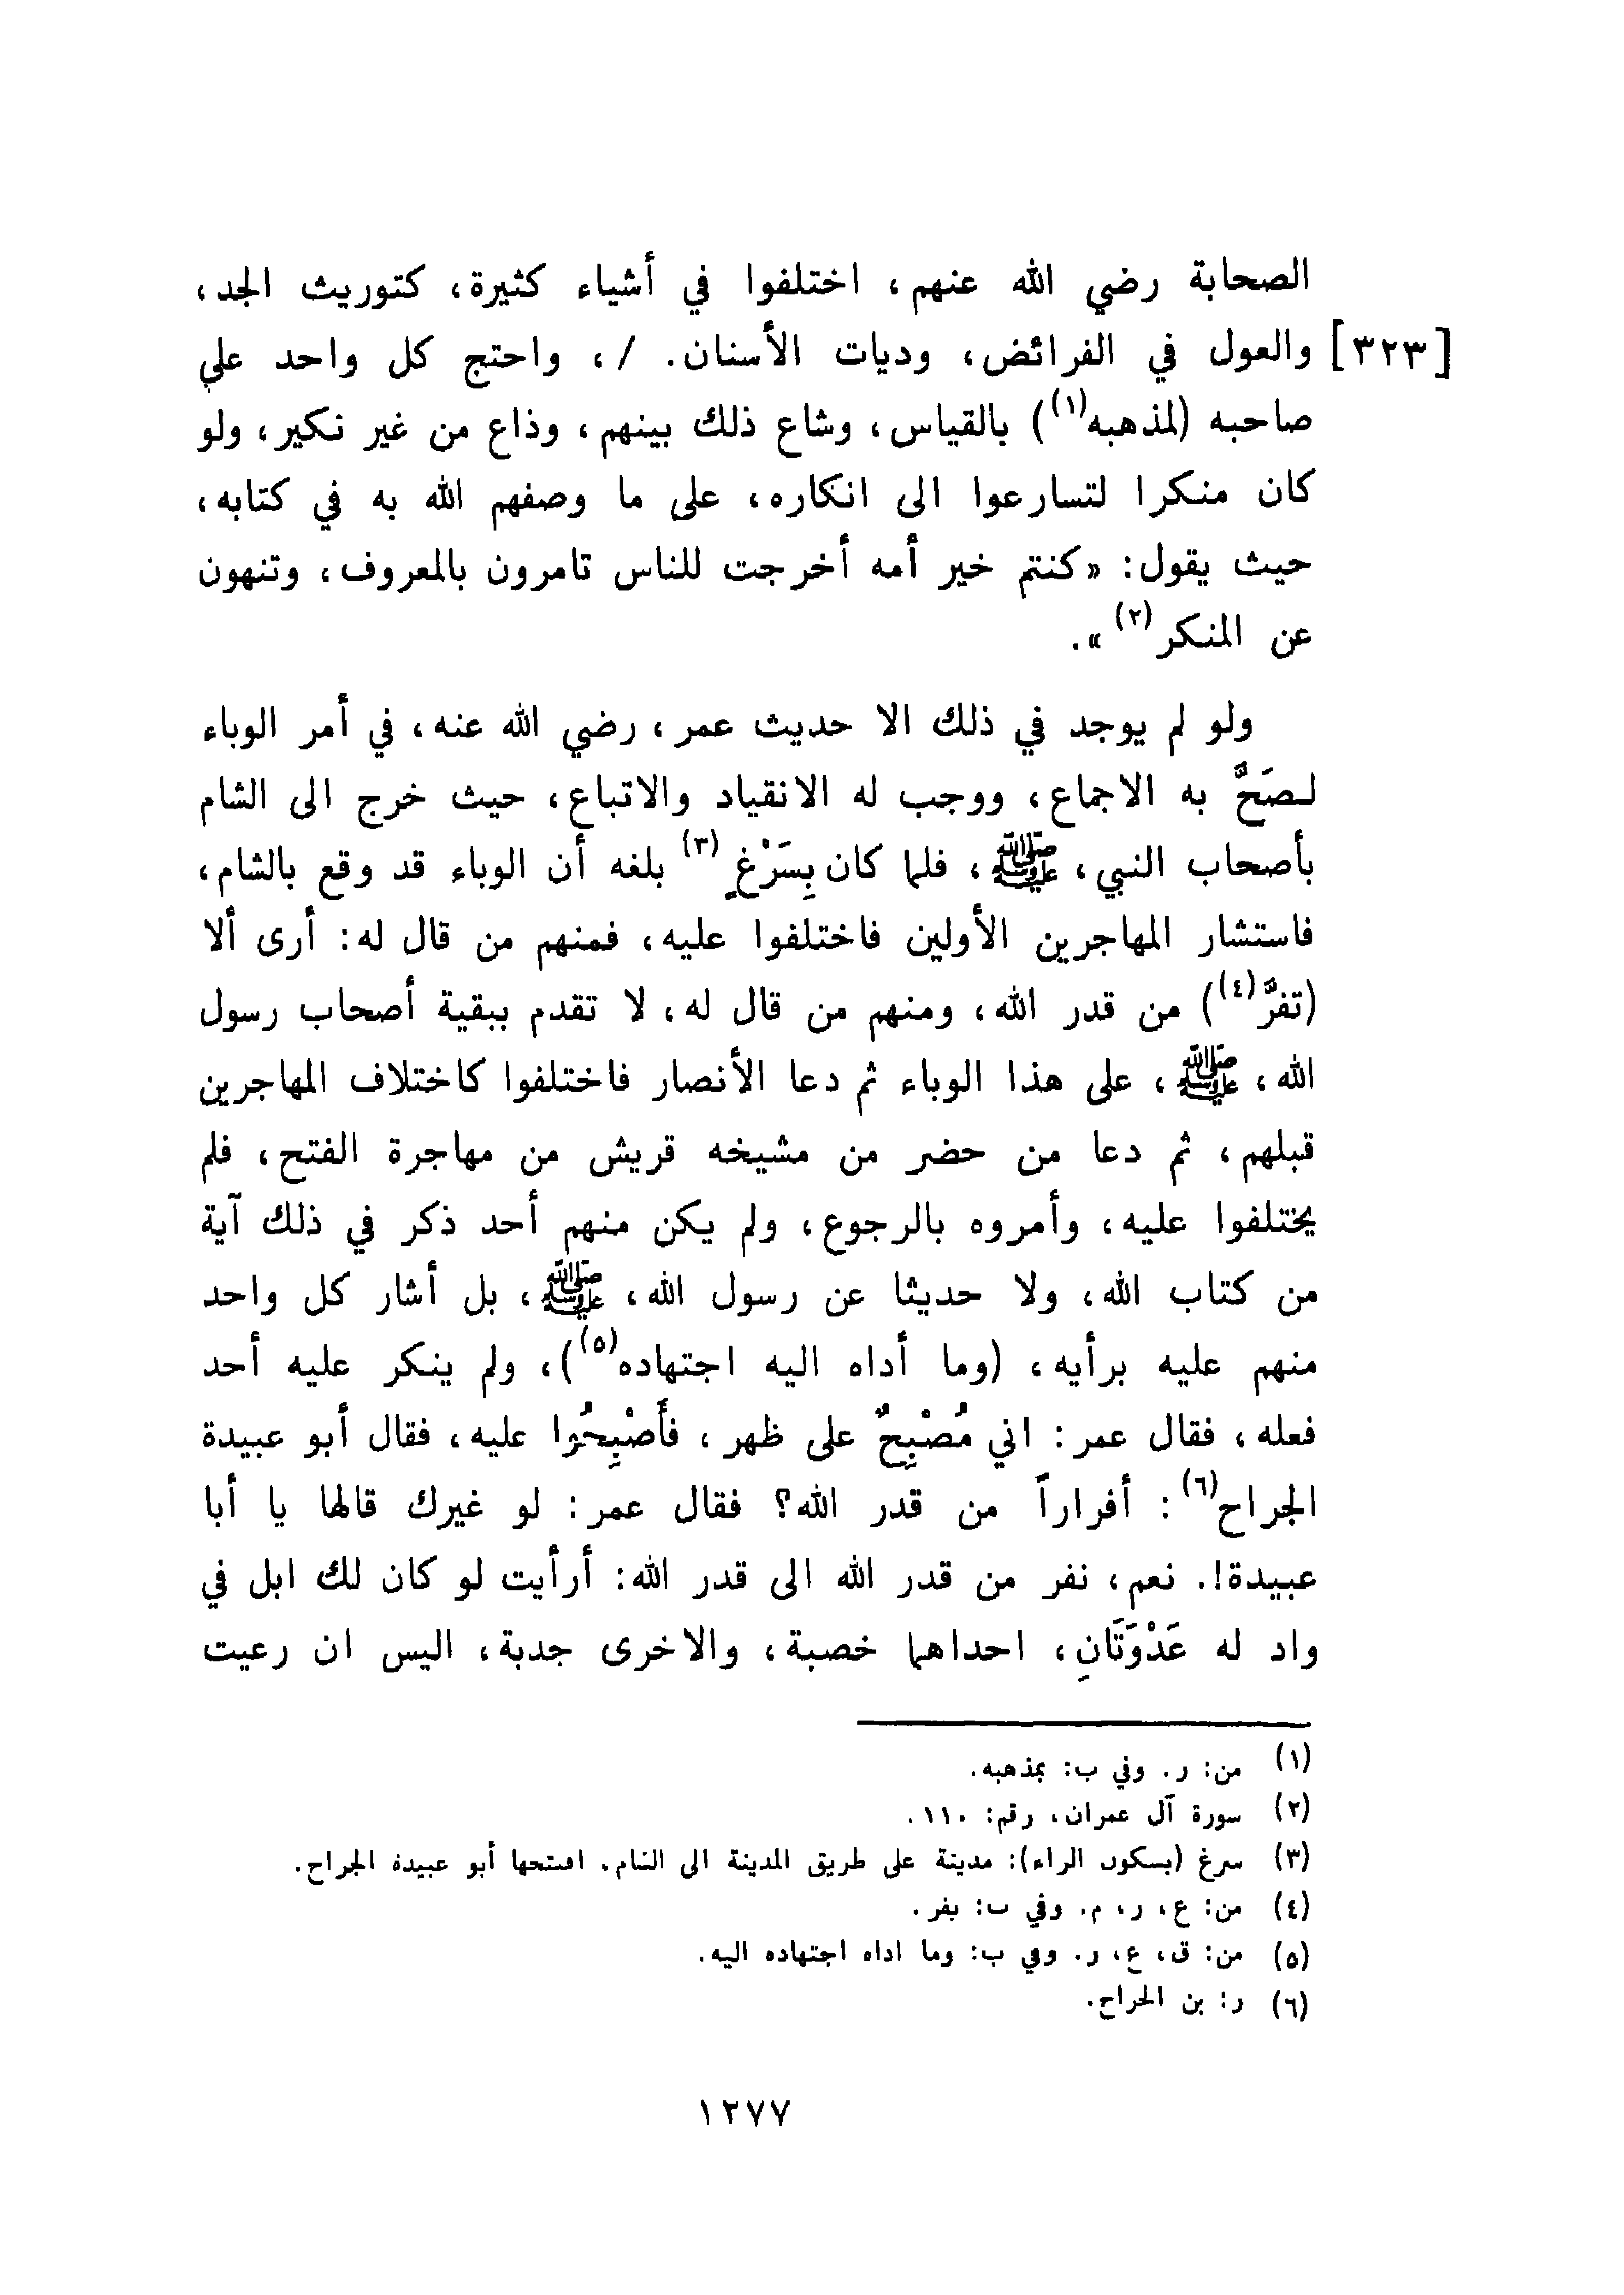 الصحابة رضي الله عنهم، اختلفوا في أشياء كثيرة، كتوريث الجد،
[٣٢٣] والعول في الفرائض، وديات الأسنان. /، واحتج كل واحد على
صاحبه (لمذهبه(١)) بالقياس، وشاع ذلك بينهم، وذاع من غير نكير، ولو
كان منكرا لتسارعوا الى انكاره، على ما وصفهم الله به في كتابه،
حيث يقول: «كنتم خير أمه أخرجت للناس تامرون بالمعروف، وتنهون
عن المنكر(٢)».
ولو لم يوجد في ذلك الا حديث عمر، رضي الله عنه، في أمر الوباء
لـصَحَّ به الاجماع، ووجب له الانقياد والاتباع، حيث خرج الى الشام
بأصحاب النبي، ﷺ، فلما كان بِسَرْغٍ(٣) بلغه أن الوباء قد وقع بالشام،
فاستشار المهاجرين الأولين فاختلفوا عليه، فمنهم من قال له: أرى ألا
(تفرَّ(٤)) من قدر الله، ومنهم من قال له، لا تقدم ببقية أصحاب رسول
الله، ﷺ، على هذا الوباء ثم دعا الأنصار فاختلفوا كاختلاف المهاجرين
قبلهم، ثم دعا من حضر من مشيخه قريش من مهاجرة الفتح، فلم
يختلفوا عليه، وأمروه بالرجوع، ولم يكن منهم أحد ذكر في ذلك آية
من كتاب الله، ولا حديثا عن رسول الله، ﷺ، بل أشار كل واحد
منهم عليه برأيه، (وما أداه اليه اجتهاده(٥))، ولم ينكر عليه أحد
فعله، فقال عمر: اني مُصْبِحٌ على ظهر، فأَصْبِحُوا عليه، فقال أبو عبيدة
الجراح(٦): أفراراً من قدر الله؟ فقال عمر: لو غيرك قالها يا أبا
عبيدة!. نعم، نفر من قدر الله الى قدر الله: أرأيت لو كان لك ابل في
واد له عَدْوَتَانِ، احداهما خصبة، والاخرى جدبة، اليس ان رعيت
(١) من: ر. وفي ب: بمذهبه.
(٢) سورة آل عمران، رقم: ١١٠.
(٣) سرغ (بسكون الراء): مدينة على طريق المدينة الى الشام. افتتحها أبو عبيدة الجراح.
(٤) من: ع، ر، م. وفي ب: بفر.
(٥) من: ق، ع، ر. وفي ب: وما اداه اجتهاده اليه.
(٦) ر: بن الجراح.
١٢٧٧